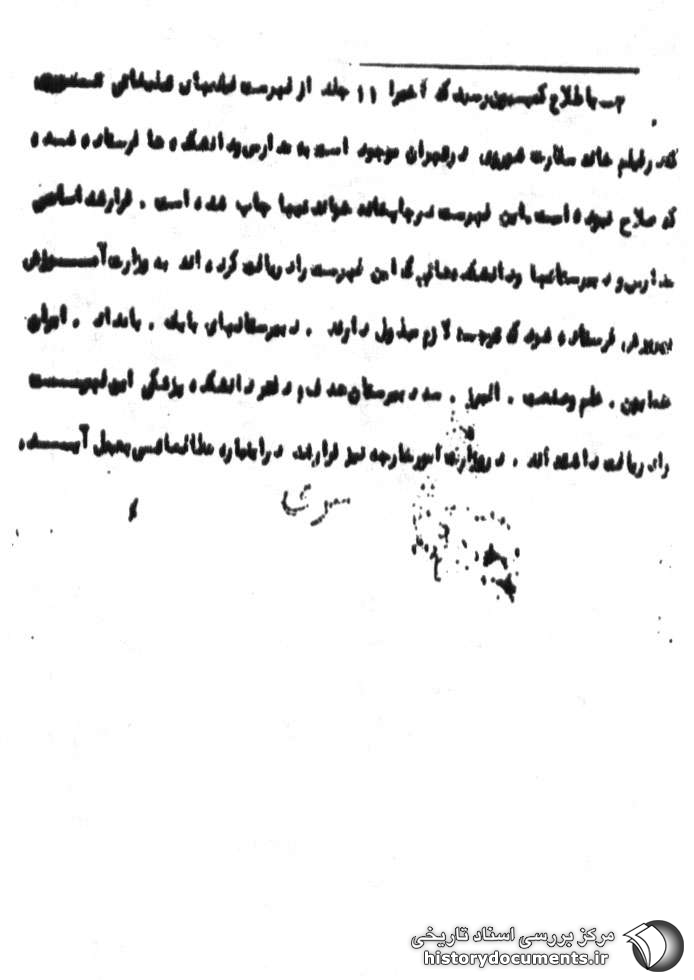 ۳ـ باطلاع کمیسیون رسید که اخیرا ۱۱ جلد از فهرست فیلمهای علمی
که در فیلم خانه سفارت شوروی در تهران موجود است به مدارس و دانشکده ها فرستاده شده
که صلاح نبوده است، این فهرست در چاپخانه خواندنیها چاپ شده است . قرار شد اسامی
مدارس و دبیرستانها و دانشکده هائی که این فهرست را دریافت کرده اند به وزارت آمـوزش
پرورش فرستاده شود که توجه لازم مبذول دارند . دبیرستانهای بابک . بامداد . ایران
علم وصنعت . البرز . سه دبیرستان هدف و دفتر دانشکده پزشکی این فهرست
را دریافت داشته اند . در وزارت امورخارجه نیز قرار شد دراینباره مطالعاتی بعمل آیـد .
مرکز بررسی اسناد تاریخی
historydocuments.ir